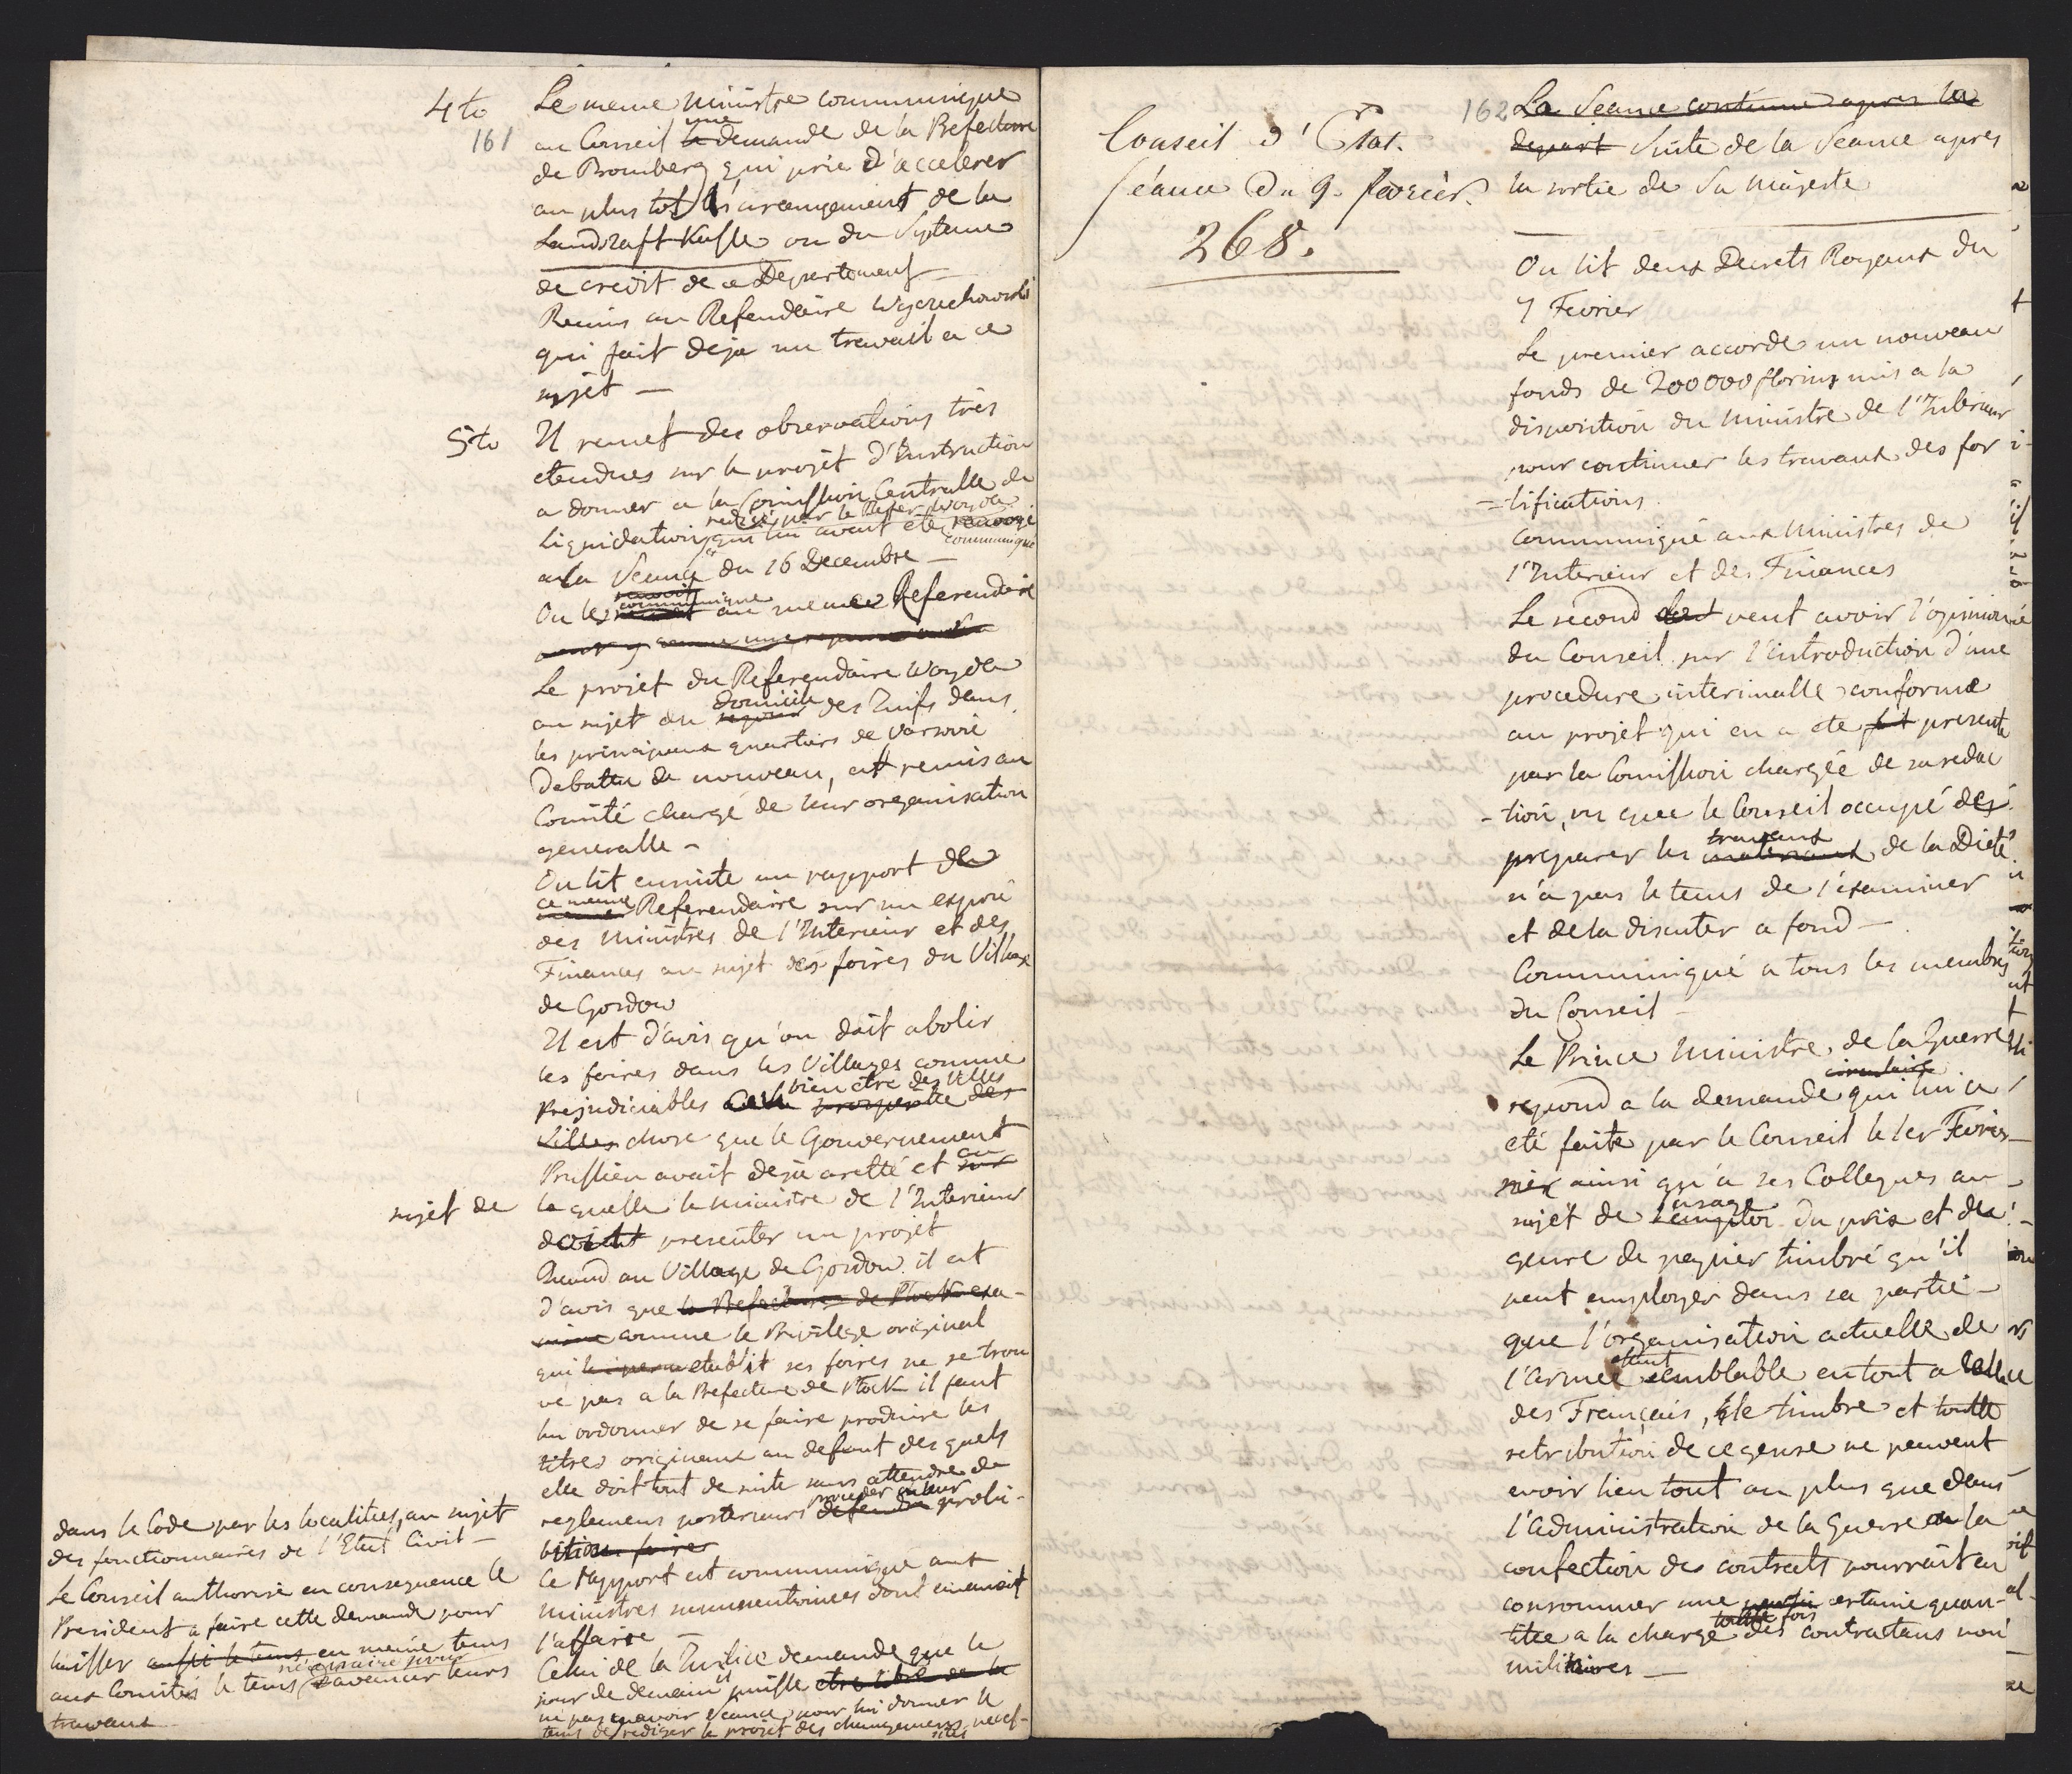 4to
161
Le meme Ministre communique
au Conseil la une demande de la Prefecture
de Bromberg qui prie d'accelerer
au plus tôt l'arrangement de la
Landschaft Kasse ou du Systeme
de credit de ce Departement
Remis au Referendaire Wyczechowski
qui fait deja un travail a ce
sujet —
5to
Il remet des observations très
etendues sur le projet d'Instruction
a donner a la Comission Centralle de
Liquidation redigé par le Refer Woyda qui lui avait été renvoyé communiqué
a la Seance du 16 Decembre —
On les renvoit communique au meme Referendaire
Le projet du Referendaire Woyda
au sujet du sejour domicile des Juifs dans
les principaux quartiers de Varsovie
Debattu de nouveau, est remis au
Comité chargé de leur organisation
generalle —
On lit ensuite un rapport de
ce meme Referendaire sur un exposé
des Ministres de l'Interieur et des
Finances au sujet des foires du Village
de Gordow
Il est d'avis qu'on doit abolir
les foires dans les Villages comme
prejudiciables au bien être des Villes prosperité des
Villes chose que le Gouvernement
Prussien avait deja aretté et sur au
sujet de laquelle le Ministre de l'Interieur
doit presenter un projet
Quand au Village de Gordow il est
d'avis que la Prefecture de Plock exa-
mine comme le Privilege original
qui etablit ses foires ne se trou
ve pas a la Prefecture de Plock il faut
lui ordonner de se faire produire les
titres originaux au defaut des quels
elle doit tout de suite sans attendre de
reglemens posterieurs defendre proceder a leur prohi-
bition foires
Ce rapport est communiqué aux
Ministres susmentionnés dont emanait
l'affaire —
Celui de la Justice demande que le
jour de demain il puisse etre libre de la
ne pas avoir Seance pour lui donner le
tems de rediger le projet des changemens neces-
sités
dans le Code par les localités, au sujet
des fonctionnaires de l'Etat Civil —
Le Conseil authorise en consequence le
President a faire cette demande pour
laisser aussi le tems en meme tems
aux Comités le tems nécessaire pour d'avancer leurs
travaux
162
Conseil d'Etat.
Séance du 9. fevrier.
268.
La Seance continue apres le
depart Suite de la Seance apres
la sortie de Sa Majeste
On lit deux Decrets Royaux du
7 Fevrier
Le premier accorde un nouveau
fonds de 200000 florins mis a la
disposition du Ministre de l'Interieur
pour continuer les travaux des for
=tifications.
Communiqué aux Ministres de
l'Interieur et des Finances
Le second veut avoir l'opinion
du Conseil sur l'introduction d'une
procedure interimalle conforme
au projet qui en a ete fait presenté
par la Comission chargée de sa redac
-tion, vu que le Conseil occupé de
preparer les materiaux travaux de la Diete
n'a pas le tems de l'examiner
et de la discuter a fond —
Communiqué a tous les membres
du Conseil —
Le Prince Ministre de la Guerre
repond a la demande circulaire qui lui a
eté faite par le Conseil le 1er Fevrier
ainsi qu'a ses Collegues au
sujet de l'emploi usage du prix et du
genre de papier timbré qu'il
peut employer dans sa partie —
que l'organisation actuelle de
l'armée etant semblable en tout a celle
des Français, le timbre et toutte
retribution de ce genre ne peuvent
avoir lieu tout au plus que dans
l'administration de la Guerre ou la
confection des contrats pourrait en
consommer une partie certaine quan-
titée a la charge toutte fois des contractans non
militaires —